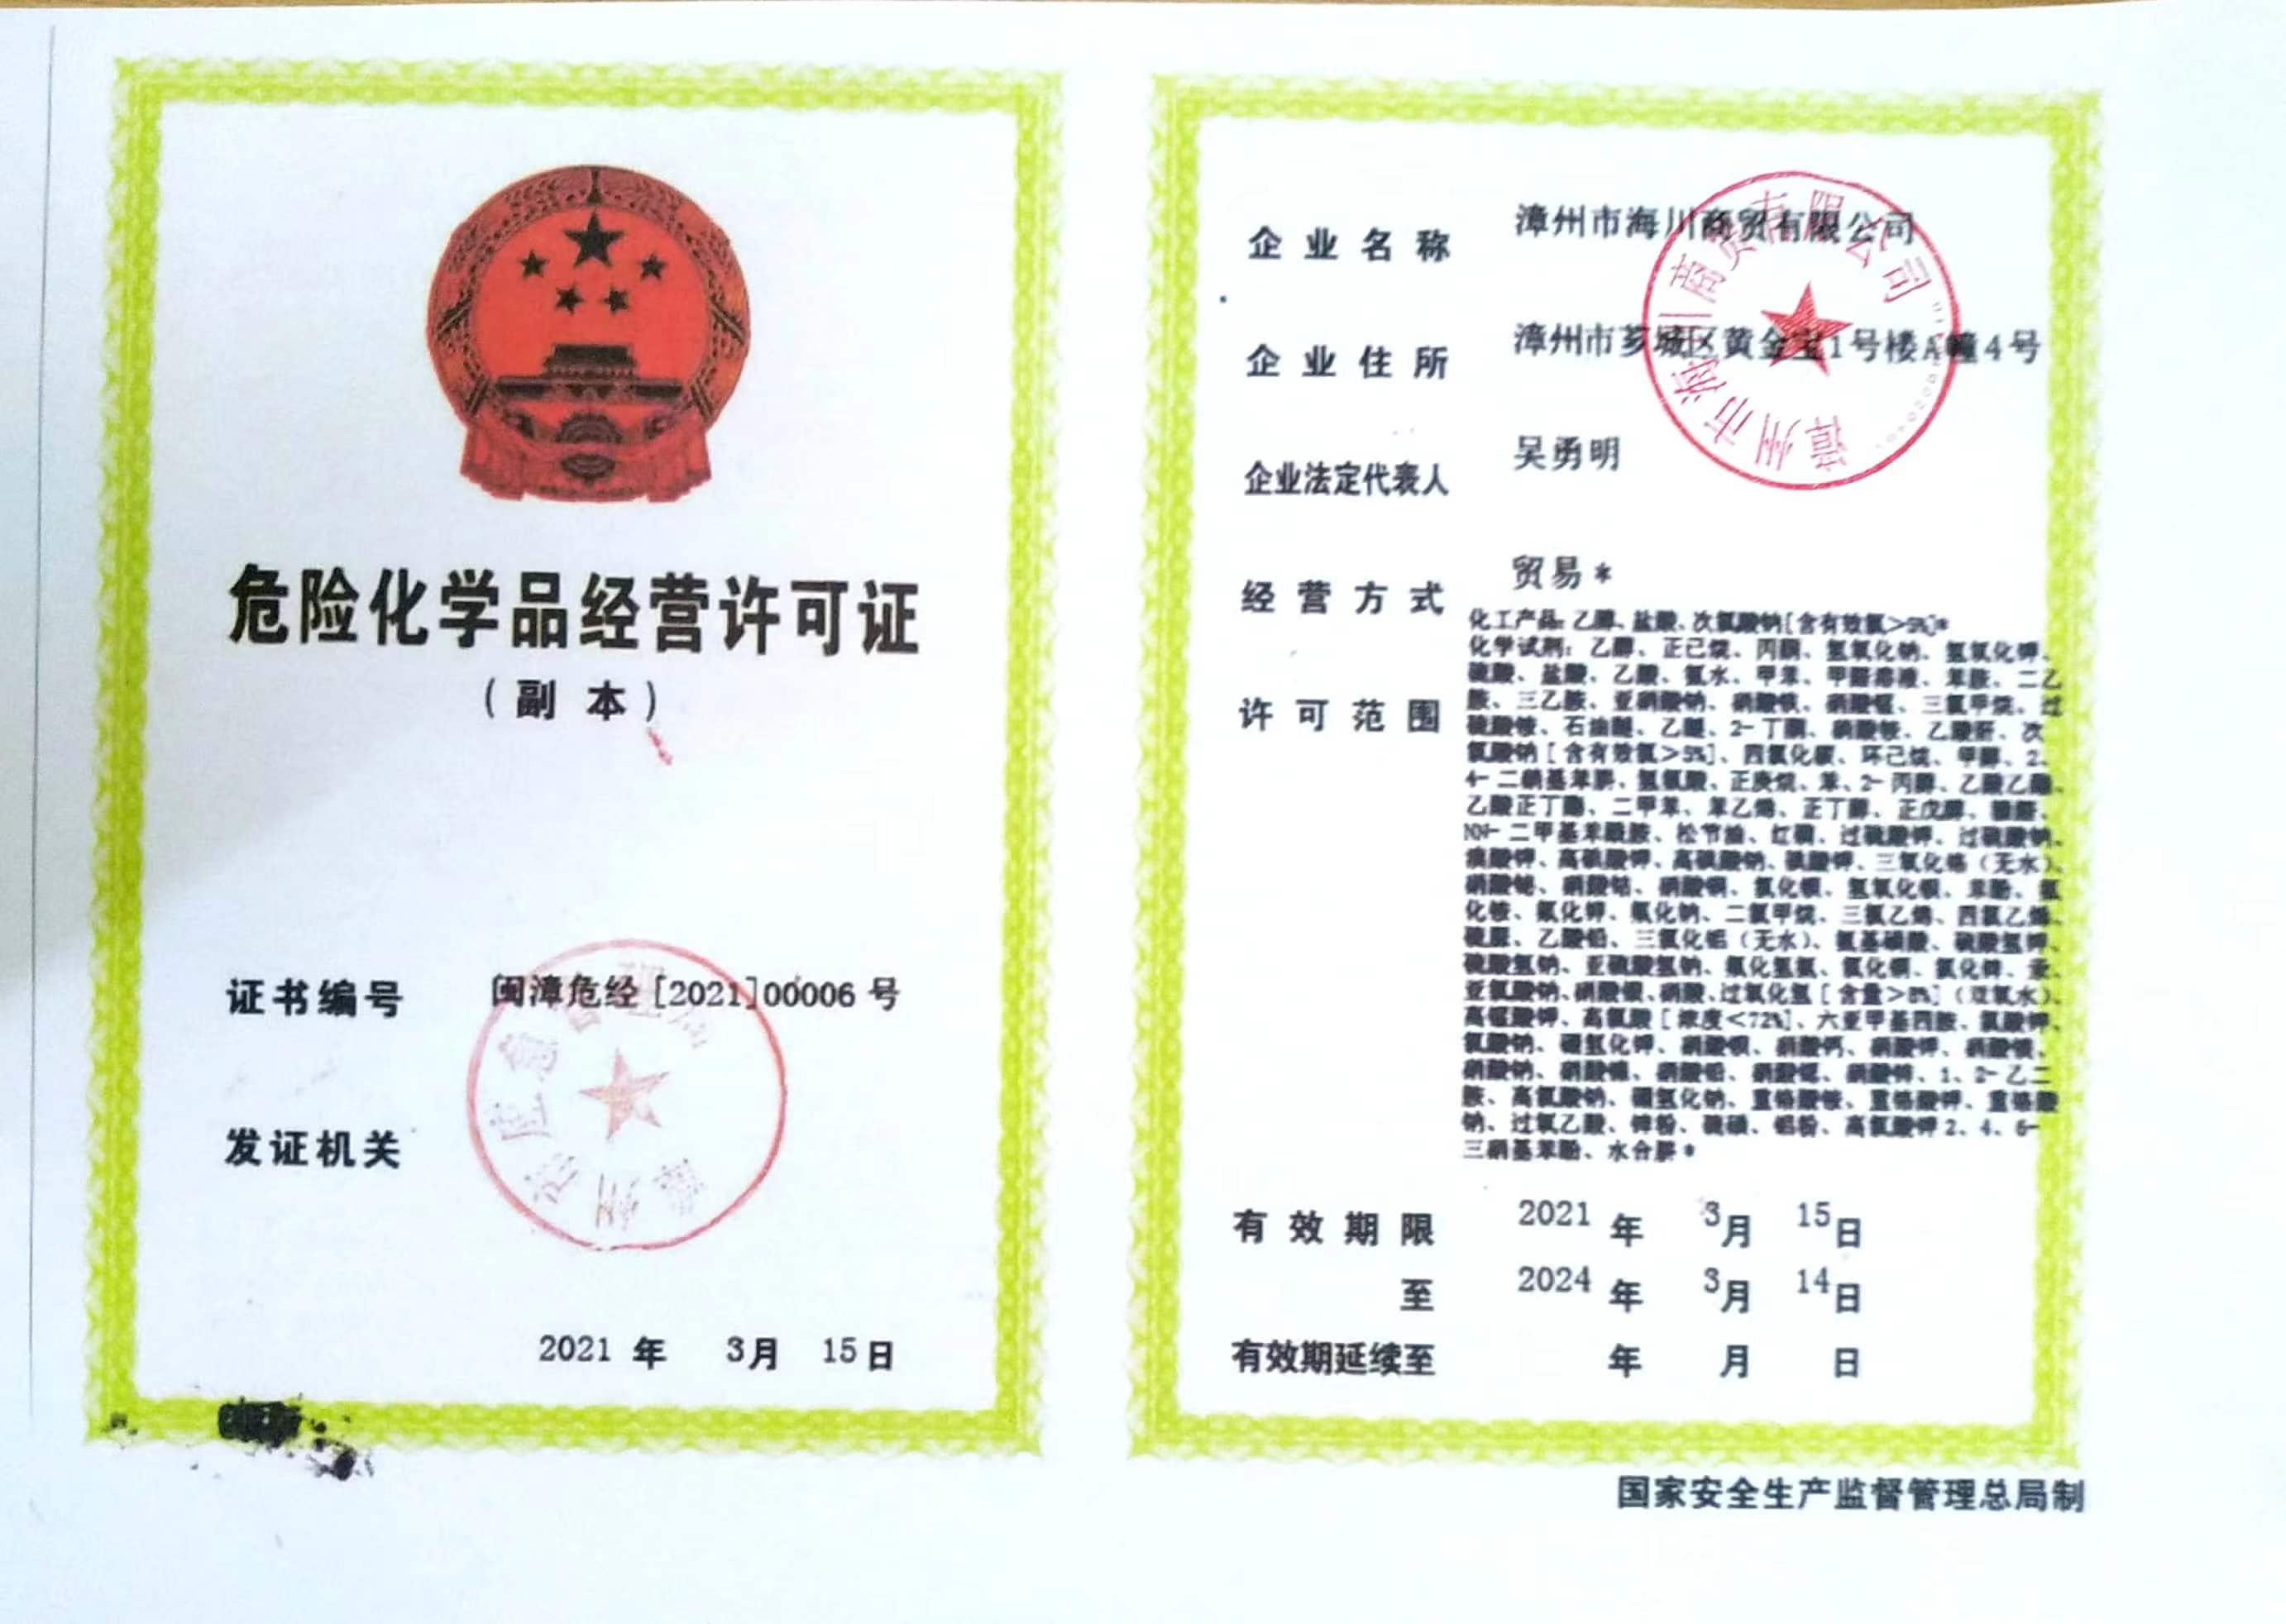 危险化学品经营许可证
（副 本）
证书编号 闽漳危经［2021］00006 号
发证机关
漳州应急管理
2021 年 3月 15日
企业名称 漳州市海川商贸有限公司
漳州市海川商贸有限公司
企业住所 漳州市芗城区黄金宝1号楼A幢4号
企业法定代表人 吴勇明
经营方式 贸易*
许可范围
化工产品：乙醇、盐酸、次氯酸钠[含有效氯>5%]*
化学试剂：乙醇、正己烷、丙酮、氢氧化钠、氢氧化钾、
硫酸、盐酸、乙酸、氨水、甲苯、甲醛溶液、苯胺、二乙
胺、三乙胺、亚硝酸钠、硝酸、硝酸、三氯甲烷、过
硫酸铵、石油醚、乙醚、2-丁酮、硝酸铵、乙酸酐、次
氯酸钠[含有效氯>5%]、四氯化碳、环己烷、甲醇、2、
4-二硝基苯肼、氢氟酸、正庚烷、苯、2-丙醇、乙酸乙酯、
乙酸正丁酯、二甲苯、苯乙烯、正丁醇、正戊醇、糠醛、
NN-二甲基苯胺、松节油、红磷、过硫酸钾、过硫酸钠、
溴酸钾、高碘酸钾、高碘酸钠、碘酸钾、三氧化铬（无水）、
硝酸、硝酸钴、硝酸铜、氯化钡、氢氧化钡、苯酚、氟
化铵、氟化钾、氟化钠、二氯甲烷、三氯乙烯、四氯乙烯、
硫脲、乙酸铅、三氯化铝（无水）、氨基磺酸、硫酸氢钾、
硫酸氢钠、亚硫酸氢钠、氟化氢、氯化铜、氯化锌、汞、
亚氯酸钠、硝酸银、硝酸、过氧化氢[含量>8%]（双氧水）、
高锰酸钾、高氯酸[浓度<72%]、六亚甲基四胺、氯酸钾、
氯酸钠、硼氢化钾、硝酸钡、硝酸钙、硝酸钾、硝酸镁、
硝酸钠、硝酸镍、硝酸铅、硝酸、硝酸锌、1、2-乙二
胺、高氯酸钠、硼氢化钠、重铬酸铵、重铬酸钾、重铬酸
钠、过氧乙酸、锌粉、硫磺、铝粉、高氯酸钾2、4、6-
三硝基苯酚、水合肼*
有效期限 2021 年 3月 15日
至 2024 年 3月 14日
有效期延续至 年 月 日
国家安全生产监督管理总局制